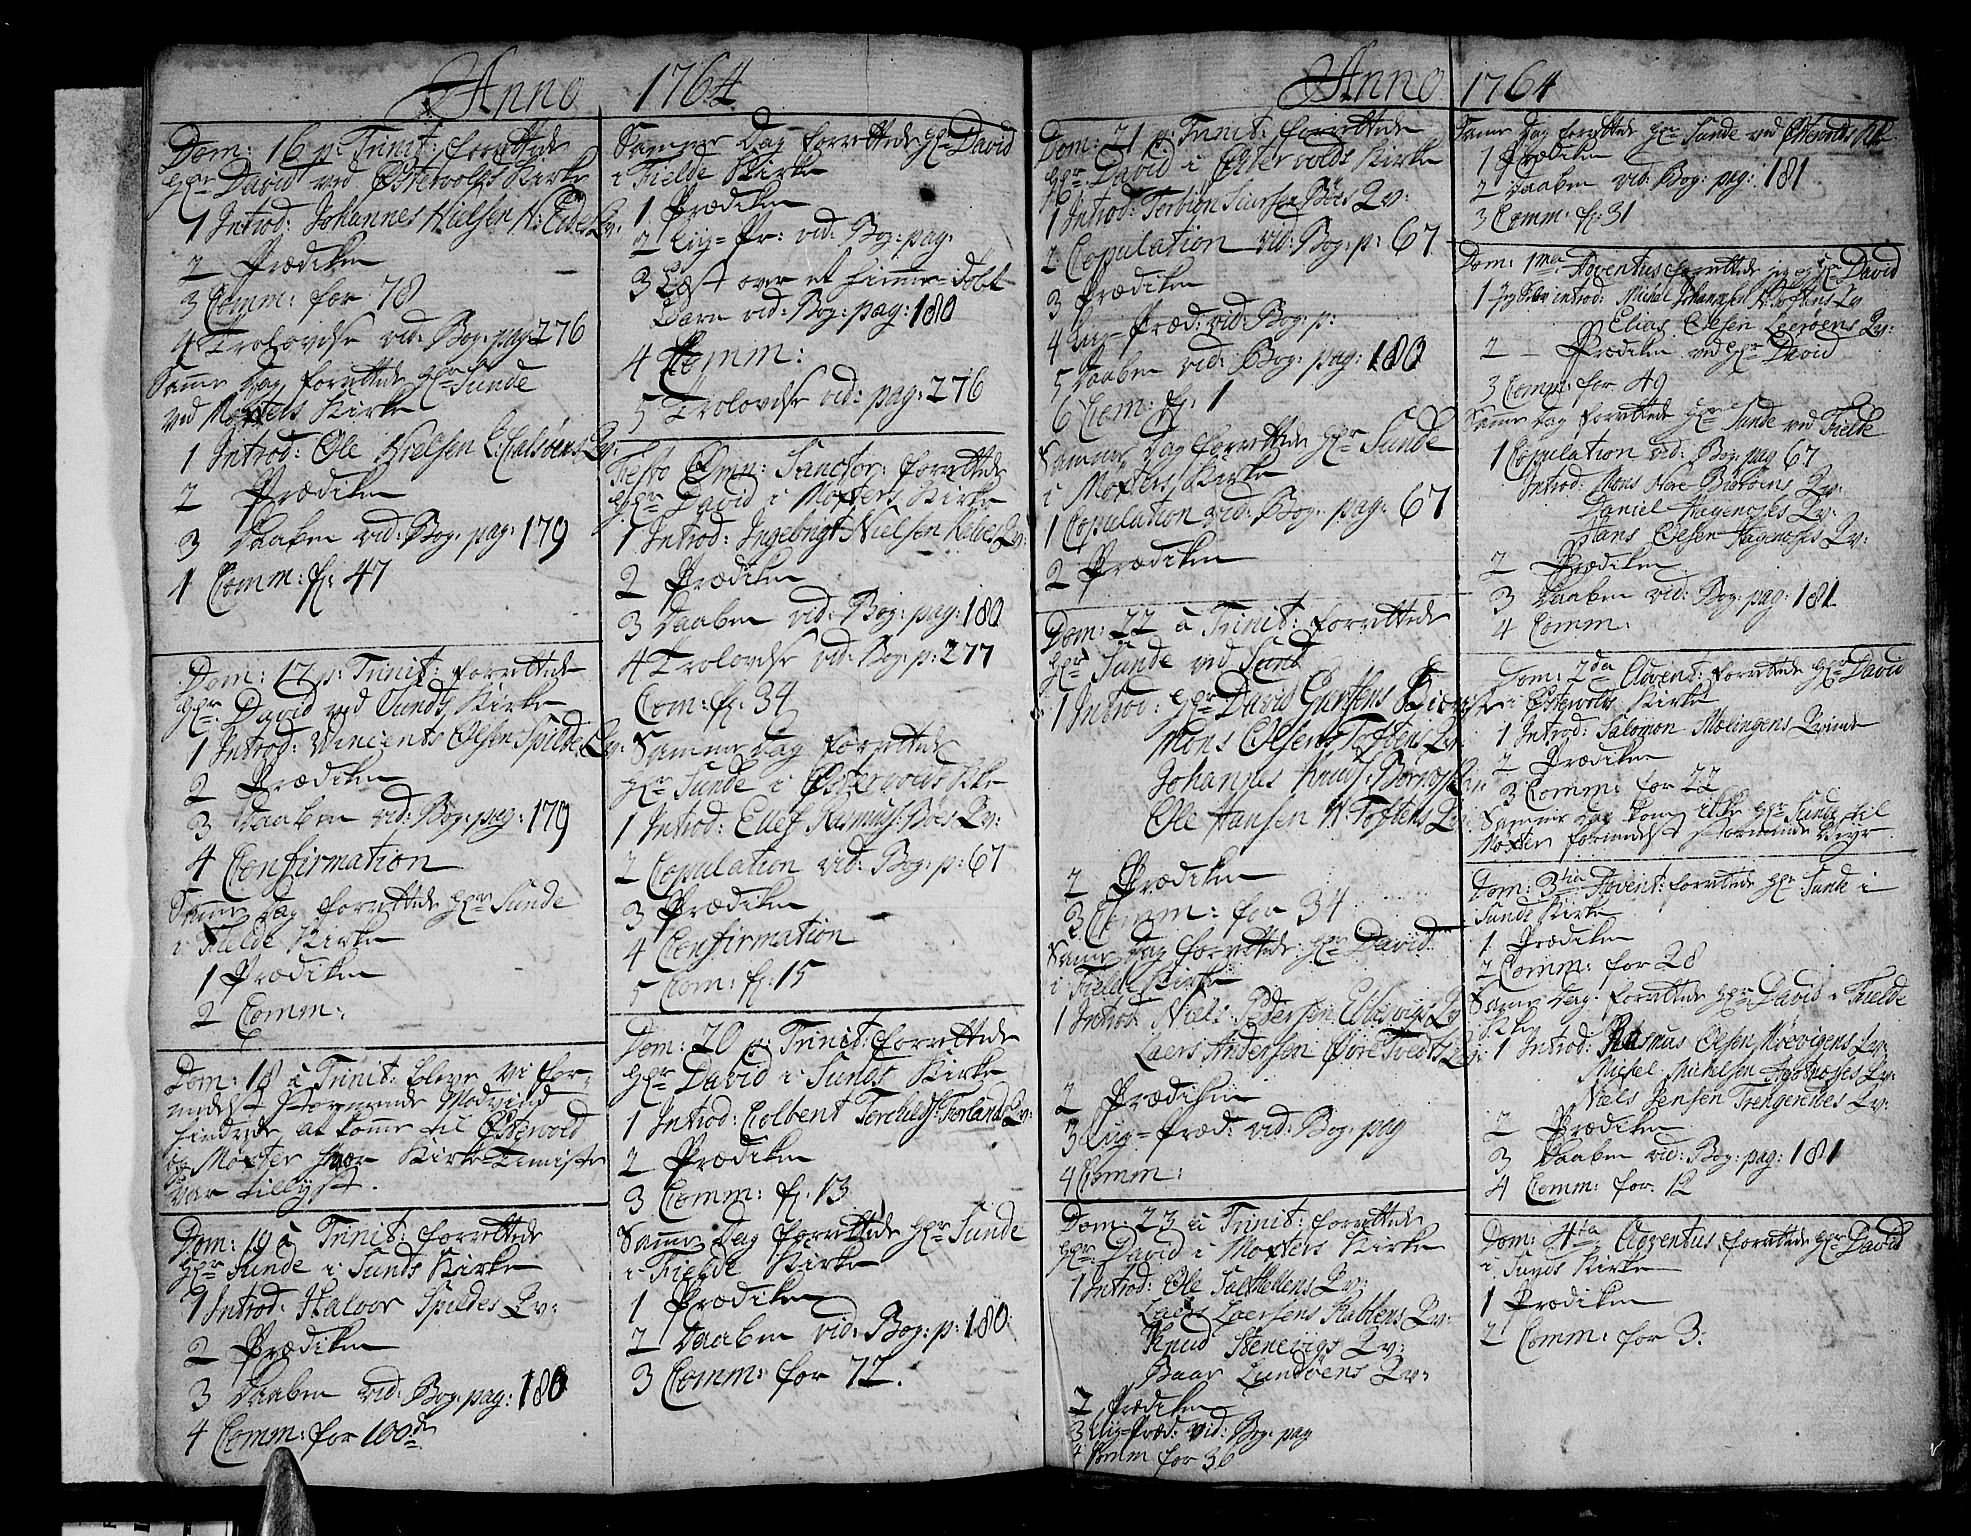 Anno 1764
Dom: 16 p: Trinit: forrettede
Hr David ved Østervolds Kirke
1 Introd: Johannes Nielsen N: Eides Qv:
2 Prædiken
3 Comm: for 78
4 Trolovelse vid: Bog: pag: 276
Samme Dag forrettede Hr Sunde
ved Møxters Kirke
1 Introd: Ole Nielsen Qv:
2 Prædiken
3 Daaben vid: Bog: pag: 179
4 Comm: f: 47
Dom: 17 p: Trinit: forrettede
Hr David ved Sunds Kirke
1 Introd: Vincents Olsen Spilde Qv:
2 Prædiken
3 Daaben vid: Bog: pag: 179
4 Confirmation
Samme Dag forrettede Hr Sunde
i Fielde Kirke
1 Prædiken
2 Comm:
Dom: 18 à Trinit: bleve vi for-
medelst stormende Modvind
hindrede at komme til Østervold
og Møxter hvor Kirke-Tieniste
var tillyst.
Dom: 19 à Trinit: forrettede
Hr Sunde i Sunds Kirke
1 Introd: Halvor Spildes Qv:
2 Prædiken
3 Daaben vid: Bog: pag: 180
4 Comm: for 100de
Samme Dag forrettede Hr David
i Fielde Kirke
1 Prædiken
2 Liig-Pr: vid: Bog: pag:
3 Læst over et hiemme-døbt
Barn vid: Bog: pag: 180
4 Comm:
5 Trolovelse vid: pag: 276
Festo Omn: Sanctor: forrettede
Hr David i Møxters Kirke
1 Introd: Ingebrigt Nielsen Qv:
2 Prædiken
3 Daaben vid: Bog: pag: 180
4 Trolovelse vid: Bog: p: 277
Com: f: 34
Samme Dag forrettede
Hr Sunde i Østervolds Kke
1 Introd: Ellef Rasmus: Bøes Qv:
2 Copulation vid: Bog: p: 67
3 Prædiken
4 Confirmation
5 Com: f: 15
Dom: 20 p: Trinit: forrettede
Hr David i Sunds Kirke
1 Introd: Colbent Torchilds: Torlands Qv:
2 Prædiken
3 Comm: f: 13
Samme Dag forrettede Hr Sunde
i Fielde Kirke
1 Prædiken
2 Daaben vid: Bog: p: 180
3 Comm: for 72.
Anno 1764
Dom: 21 p: Trinit: forrettede
Hr David i Østervolds Kirke
1 Introd: Torbiøn Siursen Bøes Qv:
2 Copulation vid: Bog: p: 67
3 Prædiken
4 Liig-Præd: vid: Bog: p:
5 Daaben vid: Bog: pag: 180
6 Com: f: 1
Samme Dag forrettede Hr Sunde
i Møxters Kirke
1 Copulation vid: Bog: pag: 67
2 Prædiken
Dom: 22 à Trinit: forrettede
Hr Sunde ved Sund
1 Introd: Hr David
Mons Olsens Toftens Qv:
Johannes Knuds:
Ole Hansen N Toftens Qv:
2 Prædiken
3 Comm: for 34
Samme Dag forrettede Hr David
i Fielde Kirke
1 Introd: Niels Pedersen Qv:
Laers Andersen Qv:
2 Prædiken
3 Liig-Præd: vid: Bog: pag
4 Comm:
Dom: 23 à Trinit: forrettede
Hr David i Møxters Kirke
1 Introd: Ole Qv:
Laers Laersens Rablens Qv:
Knud Stenevigs Qv:
Baar Lundøens Qv:
2 Prædiken
3 Liig-Præd: vid: Bog: pag
4 Comm for 36
Samme Dag forrettede Hr Sunde ved Østervolds Kke
1 Prædiken
2 Daaben vid: Bog: pag: 181
3 Comm: f: 31
Dom: 1ma Adventus forrettede jeg og Hr David
1 Jeg introd: Michel Johannsen N: Toftens Qv
Elias Olsen Leerøens Qv:
2 – Prædiken ved Hr David
3 Comm: for 49
Samme Dag forrettede Hr Sunde ved Fielde
1 Copulation vid: Bog: pag 67
Introd: Mons Qv:
Daniel Hagenæses Qv:
Hans Olsen Hagenæses Qv:
2 Prædiken
3 Daaben vid: Bog: pag: 181
4 Comm:
Dom: 2da Advent: forrettede Hr David
i Østervolds Kirke
1 Introd: Salomon Møvingens Qvinde
2 Prædiken
3 Comm: for 22
Samme Dag kom ikke Hr Sunde til
Møxter formedelst stormende Veyr
Dom: 3tia Advent: forrettede Hr Sunde i
Sunds Kirke
1 Prædiken
2 Comm: for 28
Samme Dag forrettede Hr David i Fielde
Kke
1 Introd: Rasmus Olsen Møvigens Qv:
Michel Michelsen Qv:
Niels Jensen Trengereides Qv:
2 Prædiken
3 Daaben vid: Bog: pag: 181
4 Comm: for 12
Dom: 4ta Adventus forrettede Hr David
i Sunds Kirke
1 Prædiken
2 Comm: for 3: